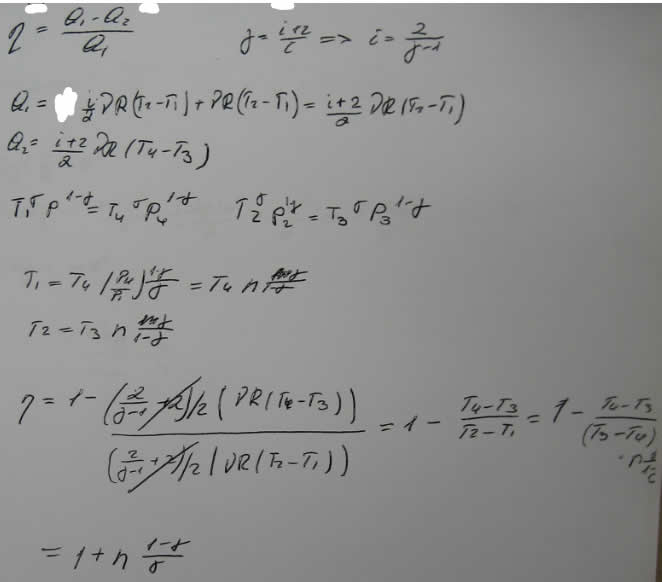 η = (Q₁ - Q₂)/Q₁   γ = (i+2)/i => i = 2/(γ-1)
Q₁ = i/2 νR(T₂-T₁) + νR(T₂-T₁) = (i+2)/2 νR(T₂-T₁)
Q₂ = (i+2)/2 νR(T₄-T₃)
T₁^γ P^(1-γ) = T₄^γ P₄^(1-γ)   T₂^γ P₂^(1-γ) = T₃^γ P₃^(1-γ)
T₁ = T₄ (P₄/P₁)^((1-γ)/γ) = T₄ n
T₂ = T₃ n
η = 1 - ((2/(γ-1) + 2)/2 (νR(T₄-T₃)))/((2/(γ-1) + 2)/2 (νR(T₂-T₁))) = 1 - (T₄-T₃)/(T₂-T₁) = 1 - (T₄-T₃)/((T₃-T₄) · n
= 1 + n (1-γ)/γ